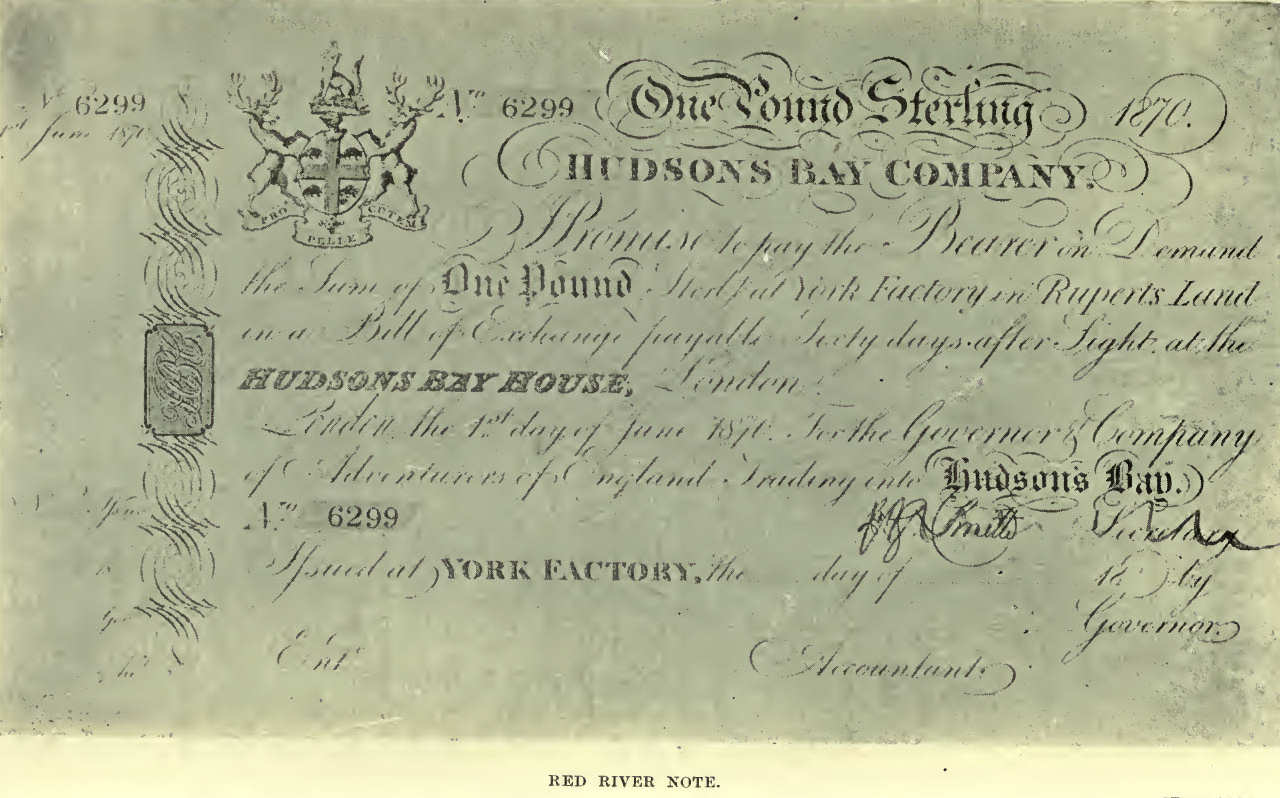 No 6299
1st June 1870
No 6299 One Pound Sterling 1870.
HUDSONS BAY COMPANY.
PRO PELLE CUTEM
I Promise to pay the Bearer on Demand
the Sum of One Pound Sterg at York Factory in Ruperts Land
in a Bill of Exchange payable Sixty days after Sight at the
HUDSONS BAY HOUSE, London.
London, the 1st day of June 1870. For the Governor & Company
of Adventurers of England Trading into Hudson's Bay.
No 6299
Smith Secretary
Issued at YORK FACTORY, the day of 18 by
Governor.
Entd
Accountant.
HBC
RED RIVER NOTE.